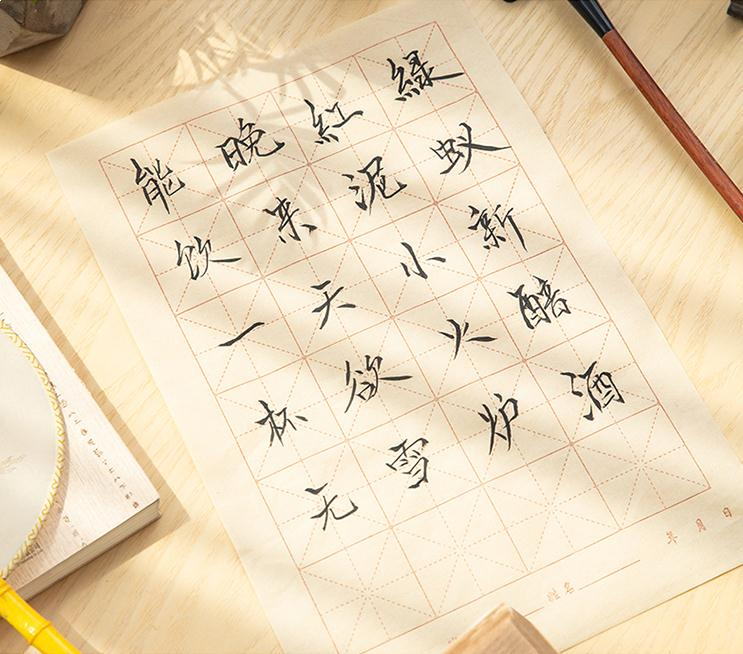 綠蚁新醅酒
紅泥小火炉
晚来天欲雪
能饮一杯无
姓名
年 月 日